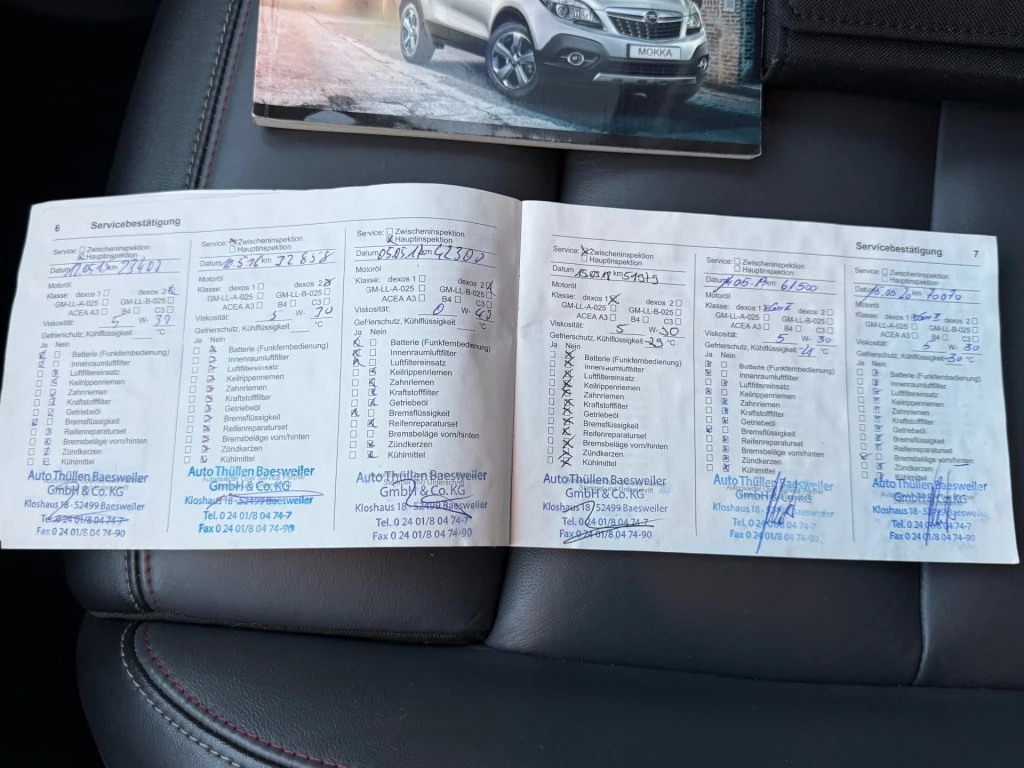 MOKKA
6 Servicebestätigung
Service: Zwischeninspektion
Hauptinspektion
Datum km
Motoröl
Klasse: dexos 1 dexos 2
GM-LL-A-025 GM-LL-B-025
ACEA A3 B4 C3
Viskosität: 5 W-
Gefrierschutz, Kühlflüssigkeit °C
Ja Nein
Batterie (Funkfernbedienung)
Innenraumluftfilter
Luftfiltereinsatz
Keilrippenriemen
Zahnriemen
Kraftstofffilter
Getriebeöl
Bremsflüssigkeit
Reifenreparaturset
Bremsbeläge vorn/hinten
Zündkerzen
Kühlmittel
Auto Thüllen Baesweiler
GmbH & Co. KG
Kloshaus 18 - 52499 Baesweiler
Tel. 0 24 01/8 04 74-7
Fax 0 24 01/8 04 74-90
Service: Zwischeninspektion
Hauptinspektion
Datum 10.5.16 km 32858
Motoröl
Klasse: dexos 1 dexos 2
GM-LL-A-025 GM-LL-B-025
ACEA A3 B4 C3
Viskosität: 5 W- 30
Gefrierschutz, Kühlflüssigkeit °C
Ja Nein
Batterie (Funkfernbedienung)
Innenraumluftfilter
Luftfiltereinsatz
Keilrippenriemen
Zahnriemen
Kraftstofffilter
Getriebeöl
Bremsflüssigkeit
Reifenreparaturset
Bremsbeläge vorn/hinten
Zündkerzen
Kühlmittel
Auto Thüllen Baesweiler
GmbH & Co. KG
Kloshaus 18 - 52499 Baesweiler
Tel. 0 24 01/8 04 74-7
Fax 0 24 01/8 04 74-90
Service: Zwischeninspektion
Hauptinspektion
Datum 05.05.17 km 42300
Motoröl
Klasse: dexos 1 dexos 2
GM-LL-A-025 GM-LL-B-025
ACEA A3 B4 C3
Viskosität: 0 W-
Gefrierschutz, Kühlflüssigkeit °C
Ja Nein
Batterie (Funkfernbedienung)
Innenraumluftfilter
Luftfiltereinsatz
Keilrippenriemen
Zahnriemen
Kraftstofffilter
Getriebeöl
Bremsflüssigkeit
Reifenreparaturset
Bremsbeläge vorn/hinten
Zündkerzen
Kühlmittel
Auto Thüllen Baesweiler
GmbH & Co. KG
Kloshaus 18 - 52499 Baesweiler
Tel. 0 24 01/8 04 74-7
Fax 0 24 01/8 04 74-90
Servicebestätigung 7
Service: Zwischeninspektion
Hauptinspektion
Datum 15.05.18 km 51979
Motoröl
Klasse: dexos 1 dexos 2
GM-LL-A-025 GM-LL-B-025
ACEA A3 B4 C3
Viskosität: 5 W-30
Gefrierschutz, Kühlflüssigkeit -29 °C
Ja Nein
Batterie (Funkfernbedienung)
Innenraumluftfilter
Luftfiltereinsatz
Keilrippenriemen
Zahnriemen
Kraftstofffilter
Getriebeöl
Bremsflüssigkeit
Reifenreparaturset
Bremsbeläge vorn/hinten
Zündkerzen
Kühlmittel
Auto Thüllen Baesweiler
GmbH & Co. KG
Kloshaus 18 - 52499 Baesweiler
Tel. 0 24 01/8 04 74-7
Fax 0 24 01/8 04 74-90
Service: Zwischeninspektion
Hauptinspektion
Datum km 61500
Motoröl
Klasse: dexos 1 dexos 2
GM-LL-A-025 GM-LL-B-025
ACEA A3 B4 C3
Viskosität: 5 W- 30
Gefrierschutz, Kühlflüssigkeit °C
Ja Nein
Batterie (Funkfernbedienung)
Innenraumluftfilter
Luftfiltereinsatz
Keilrippenriemen
Zahnriemen
Kraftstofffilter
Getriebeöl
Bremsflüssigkeit
Reifenreparaturset
Bremsbeläge vorn/hinten
Zündkerzen
Kühlmittel
Auto Thüllen Baesweiler
GmbH & Co. KG
Kloshaus 18 -
Tel. 0 24 01/8 04 74-7
Fax 0 24 01/8 04 74-90
Service: Zwischeninspektion
Hauptinspektion
Datum 15.05.20 km
Motoröl
Klasse: dexos 1 dexos 2
GM-LL-A-025 GM-LL-B-025
ACEA A3 B4 C3
Viskosität: 5 W- 30
Gefrierschutz, Kühlflüssigkeit -30 °C
Ja Nein
Batterie (Funkfernbedienung)
Innenraumluftfilter
Luftfiltereinsatz
Keilrippenriemen
Zahnriemen
Kraftstofffilter
Getriebeöl
Bremsflüssigkeit
Reifenreparaturset
Bremsbeläge vorn/hinten
Zündkerzen
Kühlmittel
Auto Thüllen Baesweiler
GmbH & Co. KG
Kloshaus 18 - 52499 Baesweiler
Tel. 0 24 01/8 04 74-7
Fax 0 24 01/8 04 74-90